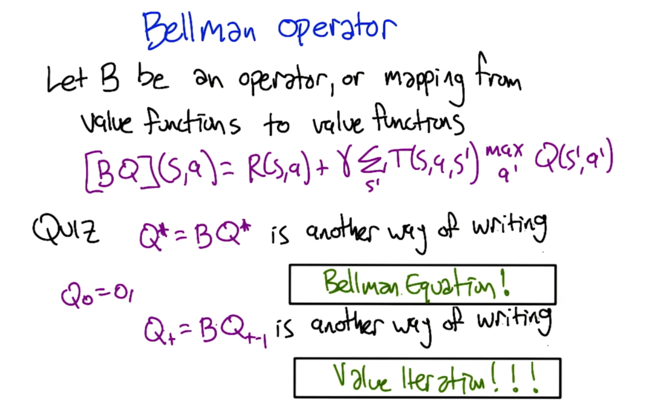 Bellman operator
Let B be an operator, or mapping from
value functions to value functions
[BQ](s,a) = R(s,a) + γ Σ_s' T(s,a,s') max_a' Q(s',a')
QUIZ Q* = BQ* is another way of writing
Bellman Equation!
Q₀=0,
Q_t = BQ_t-1 is another way of writing
Value Iteration!!!